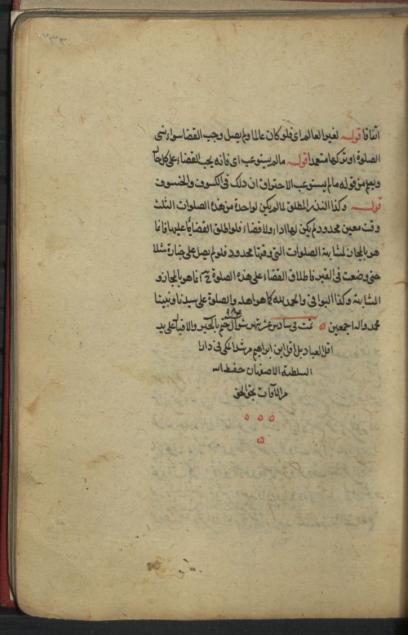 اتفاقا قوله لغير العالم اى فلو كان عالما ولم يصل وجب القضا سوا نسى
الصلوة او تركها متعمدا قوله مالم يستوعب اى فانه يجب القضا على كل حال
ويعلم من قوله مالم يستوعب الاحتراق ان ذلك فى الكسوف والخسوف
قوله وكذا النذر المطلق لما لم يكن لواحدة من هذه الصلوات الثلث
وقت معين محدود لم يكن لها ادا ولا قضا فاطلاق القضا عليها انما
هو بالمجاز لمشابهة الصلوات التى وقتها محدود فلو لم يصل على جنازة مثلا
حتى وضعت فى القبر فاطلاق القضا على هذه الصلوة ح انما هو بالمجاز و
المشابهة وكذا البواقى والحمد لله كما هو اهله والصلوة على سيدنا ونبينا
محمد واله اجمعين تمت فى سادس عشر شهر شوال ختم بالخير والاقبال على يد
اقل العباد بل اقل ابن ابراهيم فى دار
السلطنة الاصفهان حفظت
من الآفات بحق الحق